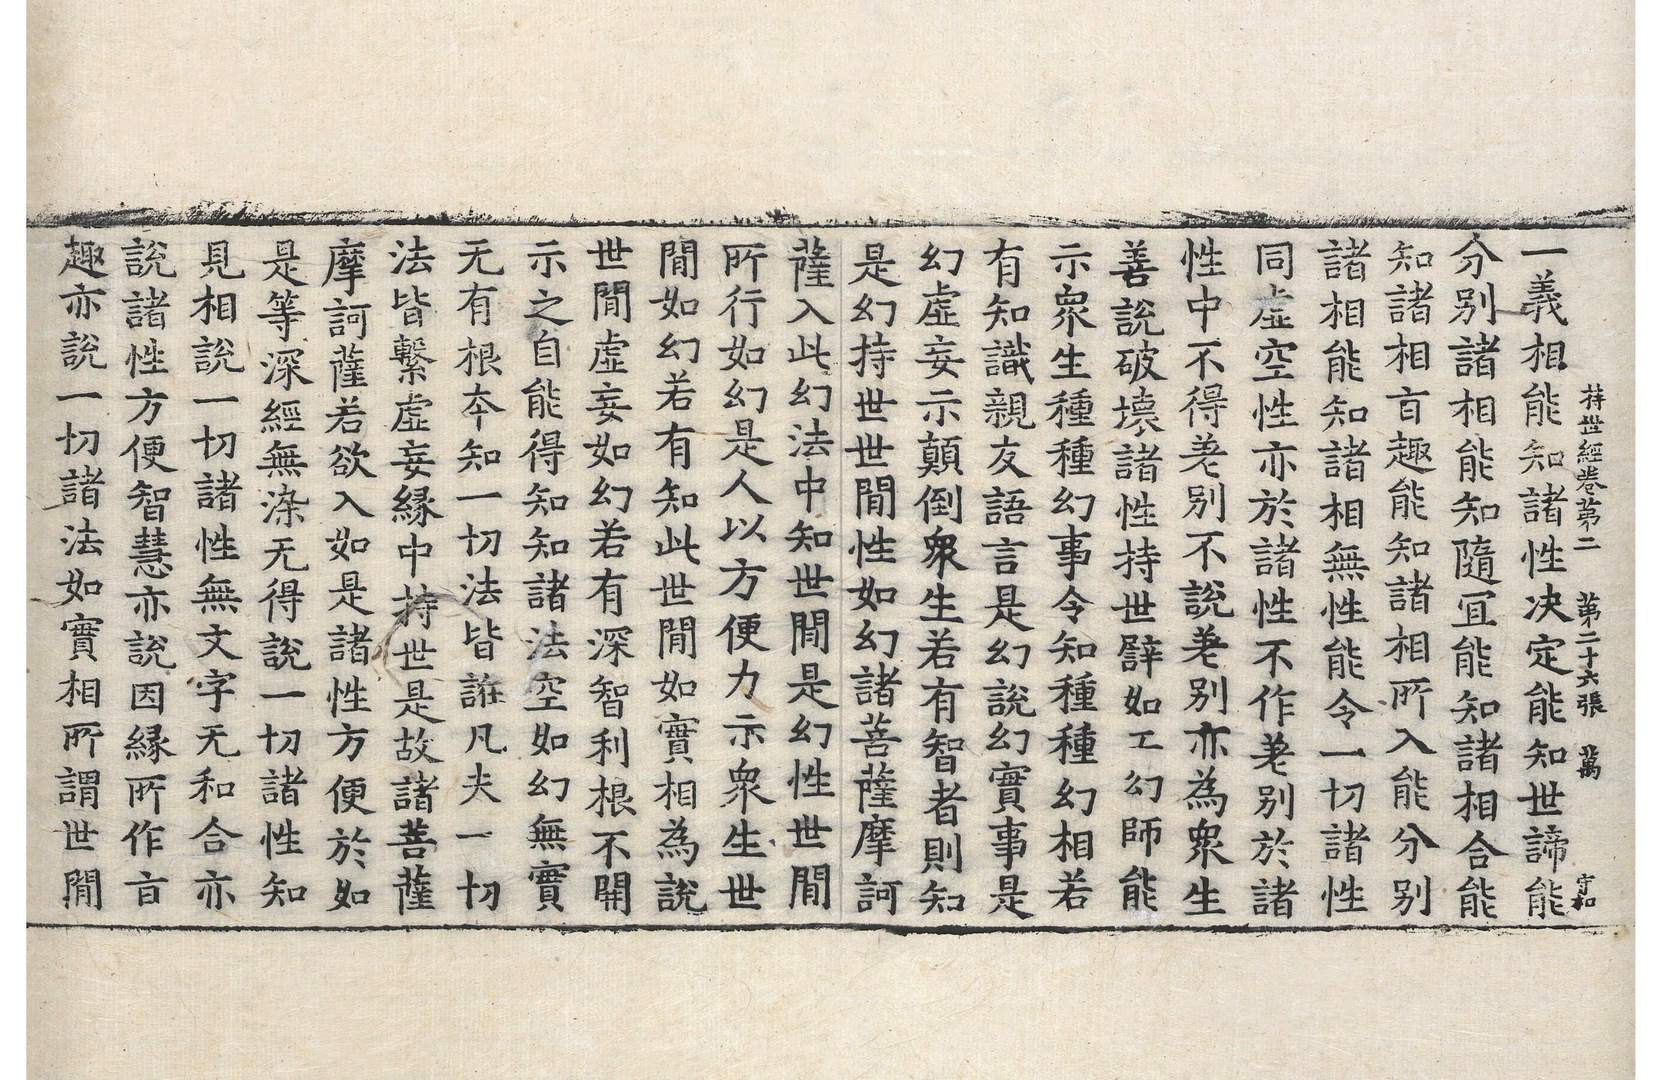 持世經卷第二 第二十六張 萬 守和
一義相能知諸性決定能知世諦能
分別諸相能知隨宜能知諸相合能
知諸相亯趣能知諸相所入能分別
諸相能知諸相無性能令一切諸性
同虛空性亦於諸性不作差別於諸
性中不得差別不說差別亦為衆生
善說破壞諸性持世譬如工幻師能
示衆生種種幻事令知種種幻相若
有知識親友語言是幻說幻實事是
幻虛妄示顛倒衆生若有智者則知
是幻持世世閒性如幻諸菩薩摩訶
薩入此幻法中知世閒是幻性世閒
所行如幻是人以方便力示衆生世
閒如幻若有知此世閒如實相為說
世閒虛妄如幻若有深智利根不開
示之自能得知知諸法空如幻無實
无有根本知一切法皆誑凡夫一切
法皆繫虛妄緣中持世是故諸菩薩
摩訶薩若欲入如是諸性方便於如
是等深經無染无得說一切諸性知
見相說一切諸性無文字无和合亦
說諸性方便智慧亦說因緣所作亯
趣亦說一切諸法如實相所謂世閒